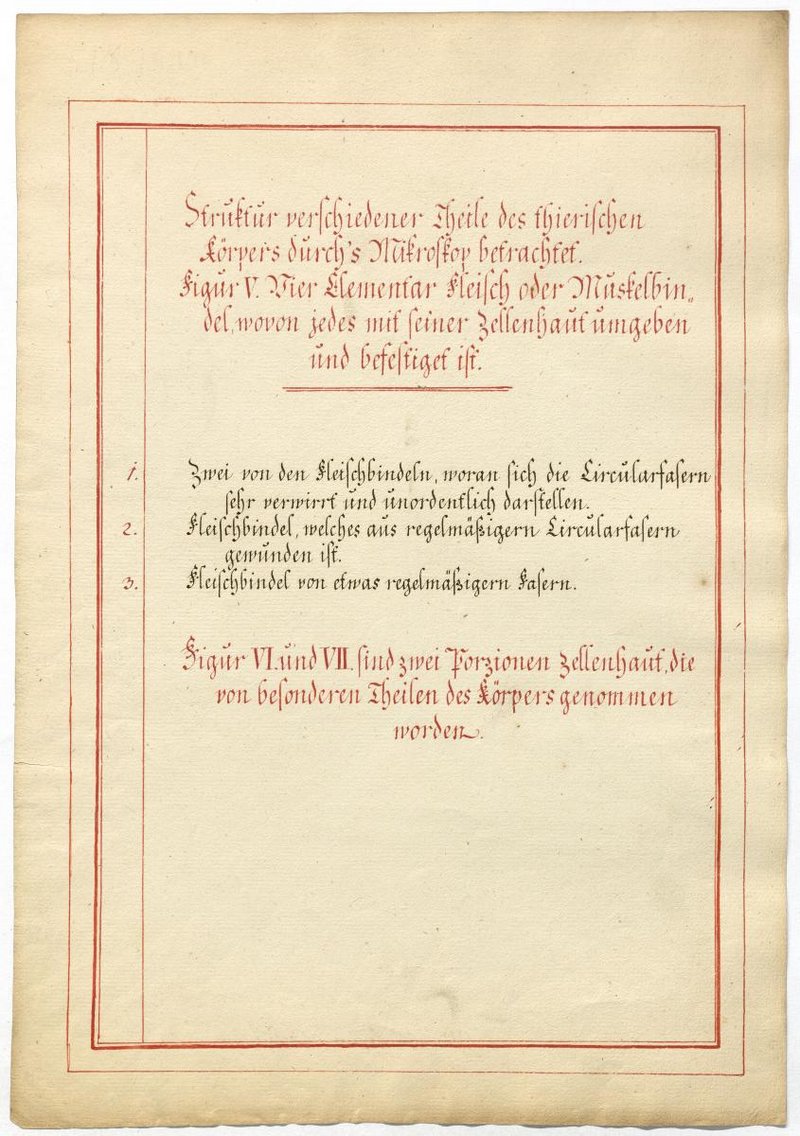 Struktur verschiedener Theile des thierischen
Körpers durch's Mikroskop betrachtet.
Figur V. Vier Elementar Fleisch oder Muskelbin„
del, wovon jedes mit seiner Zellenhaut umgeben
und befestiget ist.
1. Zwei von den Fleischbindeln, woran sich die Circularfasern
sehr verwirrt und unordentlich darstellen.
2. Fleischbindel, welches aus regelmäßigern Circularfasern
gewunden ist.
3. Fleischbindel von etwas regelmäßigern Fasern.
Figur VI. und VII. sind zwei Porzionen Zellenhaut, die
von besonderen Theilen des Körpers genommen
worden.